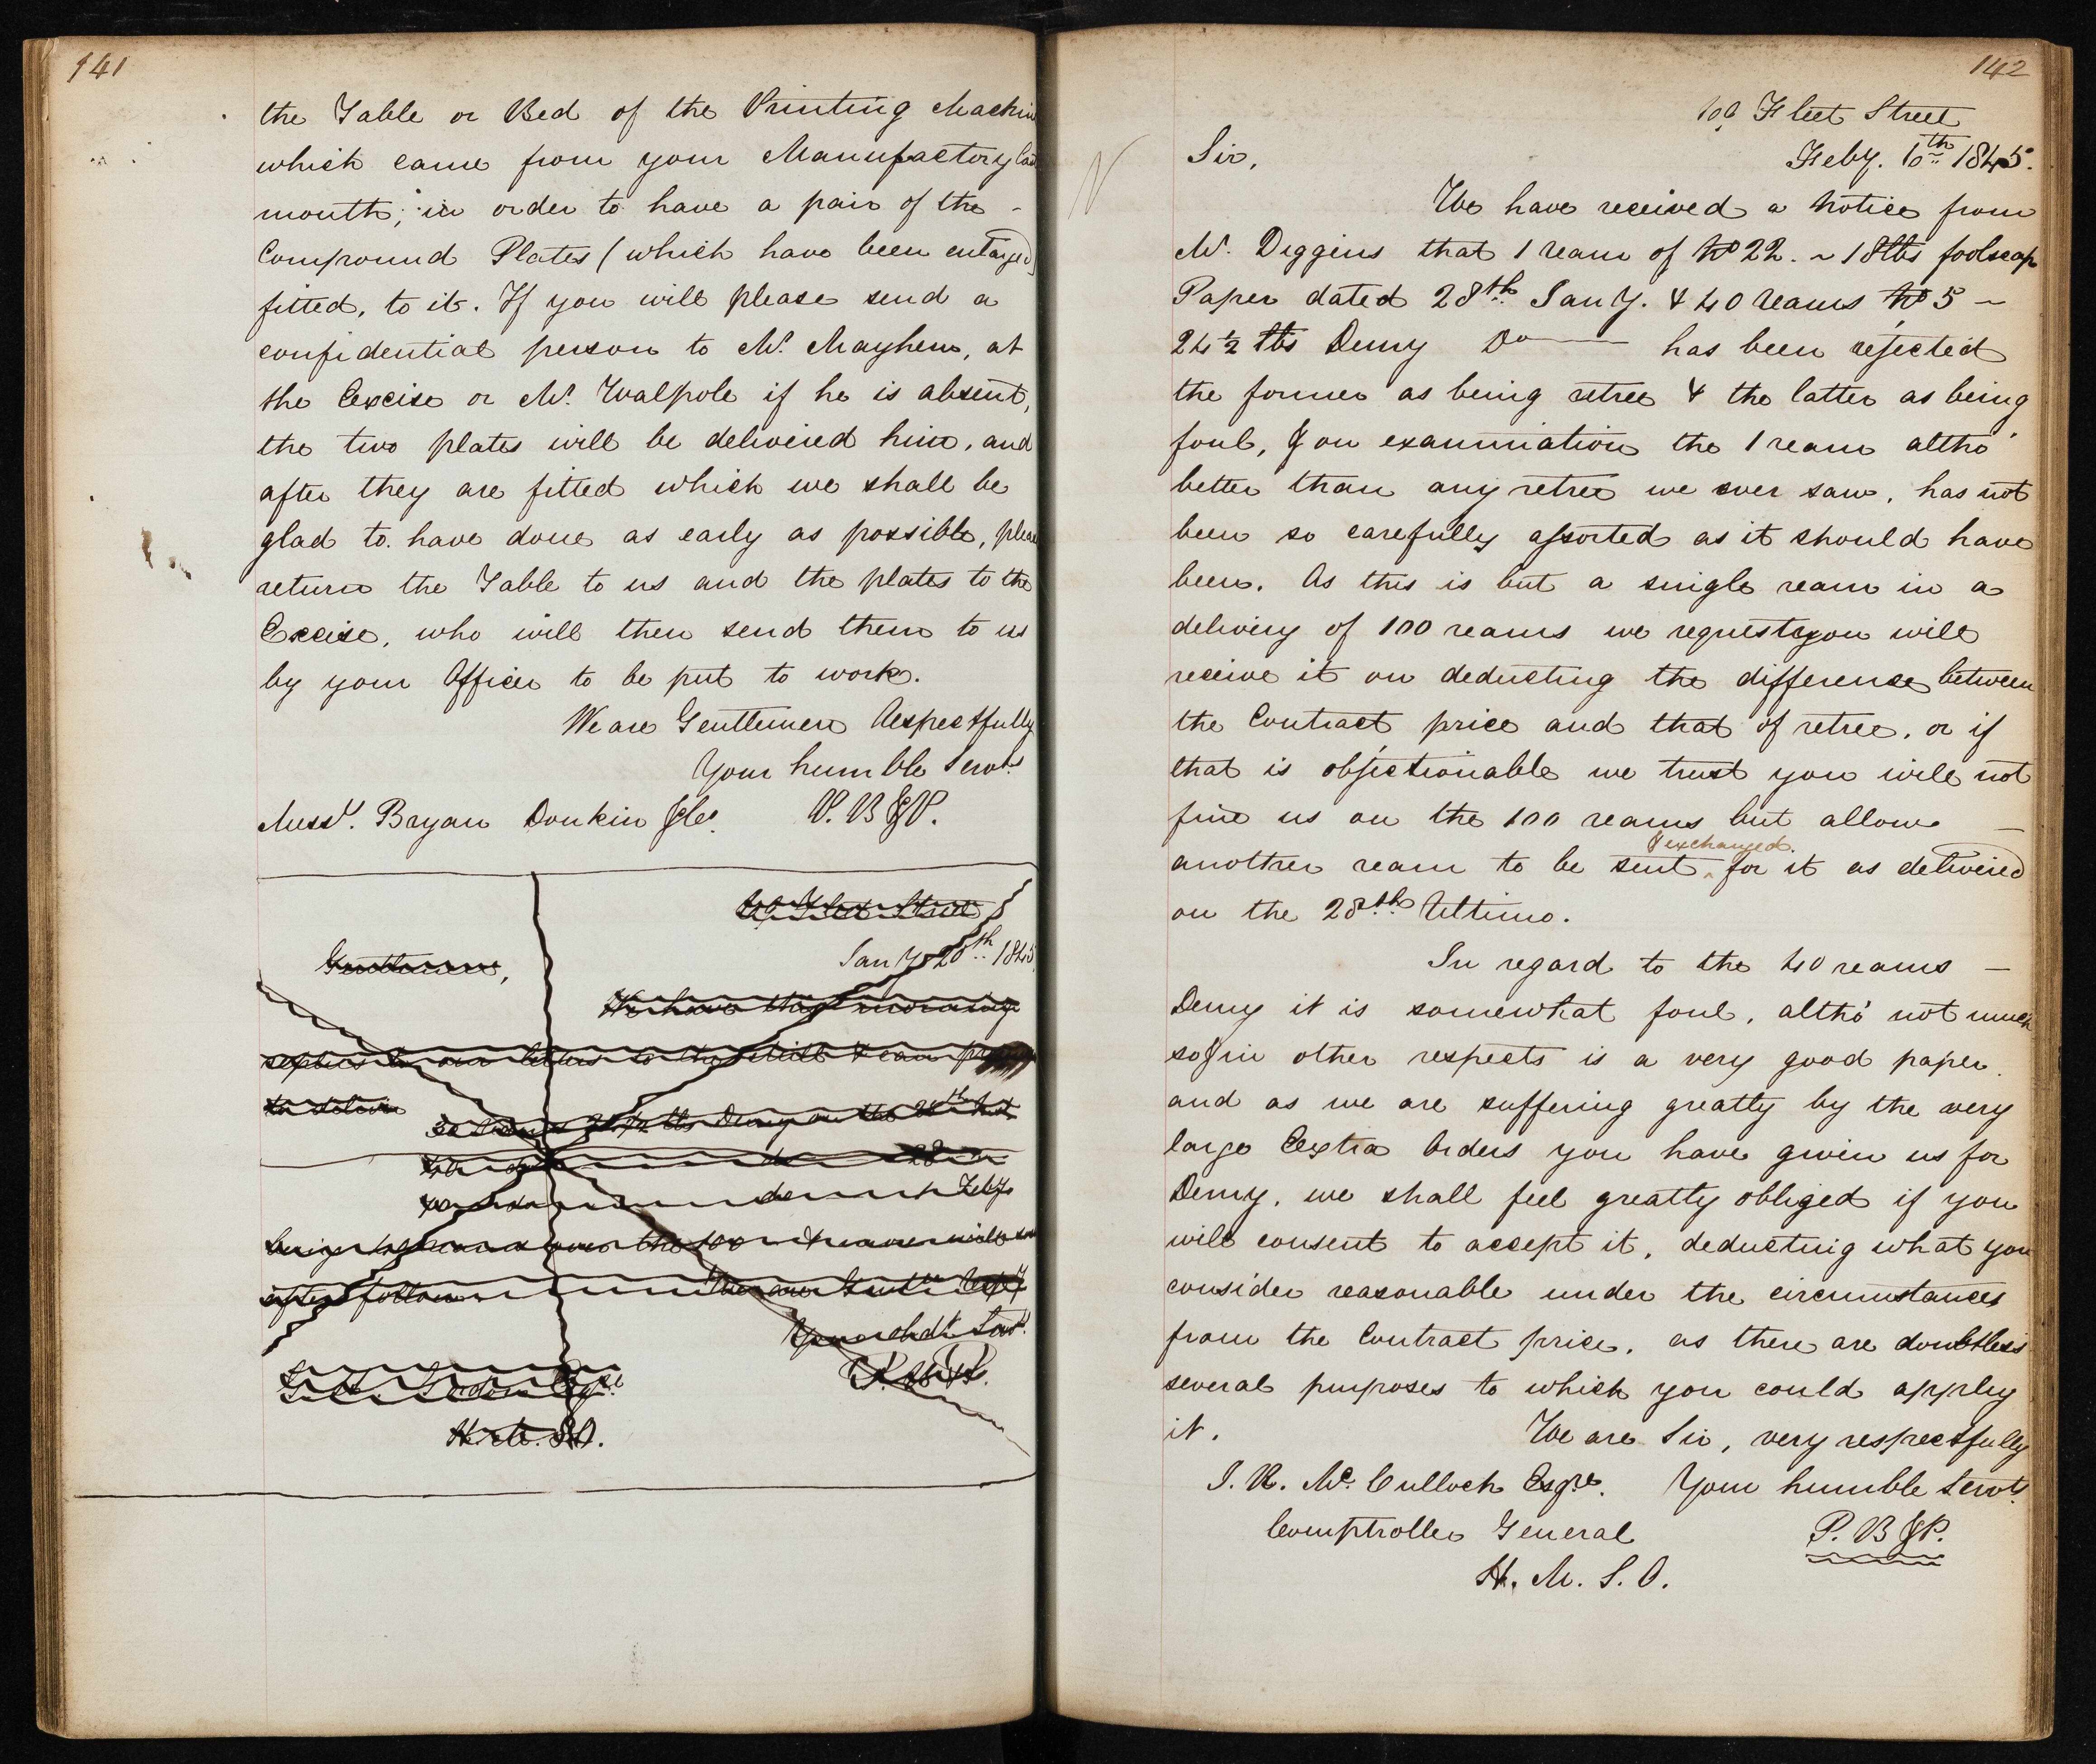 141
the Table or Bed of the Printing Machin
which came from your Manufactory las
month; in order to have a pair of the -
Compound Plates (which have been enlarged)
fitted, to it. If you will please send a
confidential person to Mr. Mayhew, at
the Excise or Mr. Walpole if he is absent,
the two plates will be delivered him, and
after they are fitted which we shall be
glad to have done as early as possible, pleas
return the Table to us and the plates to the
Excise, who will then send them to us
by your Officer to be put to work.
We are Gentlemen Respectfully
Your humble Servts
Messrs. Bryan Donkin & Co. P. B & P.
109 Fleet Street
Jany 20th 1845
Gentlemen,
We have this morning
replies to our letters to the Mills & can
to deliver
Reams 24 1/2 lbs Demy on the 24th Inst
do do 28
do do Feby
being reams over the 100 & more will
after follow. We are Gentn Respy
Your obdt Servts
P. B & P.
Esqre
H. M. S. O.
142
109 Fleet Street
Sir, Feby. 10th 1845.
We have received a Notice from
Mr. Diggins that 1 ream of No 22. ~ 18lbs foolscap
Paper dated 28th Jany. & 40 reams No 5 ~
24 1/2 lbs Demy Do has been rejected
the former as being retree & the latter as being
foul, & on examination the 1 ream altho'
better than any retree we ever saw, has not
been so carefully assorted as it should have
been. As this is but a single ream in a
delivery of 100 reams we request you will
receive it on deducting the difference between
the Contract price and that of retree, or if
that is objectionable we trust you will not
fine us on the 100 reams but allow
another ream to be sent & exchanged for it as delivered
on the 28th Ultimo.
In regard to the 40 reams -
Demy it is somewhat foul, altho' not much
so & in other respects is a very good paper
and as we are suffering greatly by the very
large Extra Orders you have given us for
Demy, we shall feel greatly obliged if you
will consent to accept it, deducting what you
consider reasonable under the circumstances
from the Contract price, as there are doubtless
several purposes to which you could apply
it. We are Sir, very respectfully
J. R. Mc. Culloch Esqre. Your humble Servts
Comptroller General P. B & P.
H. M. S. O.